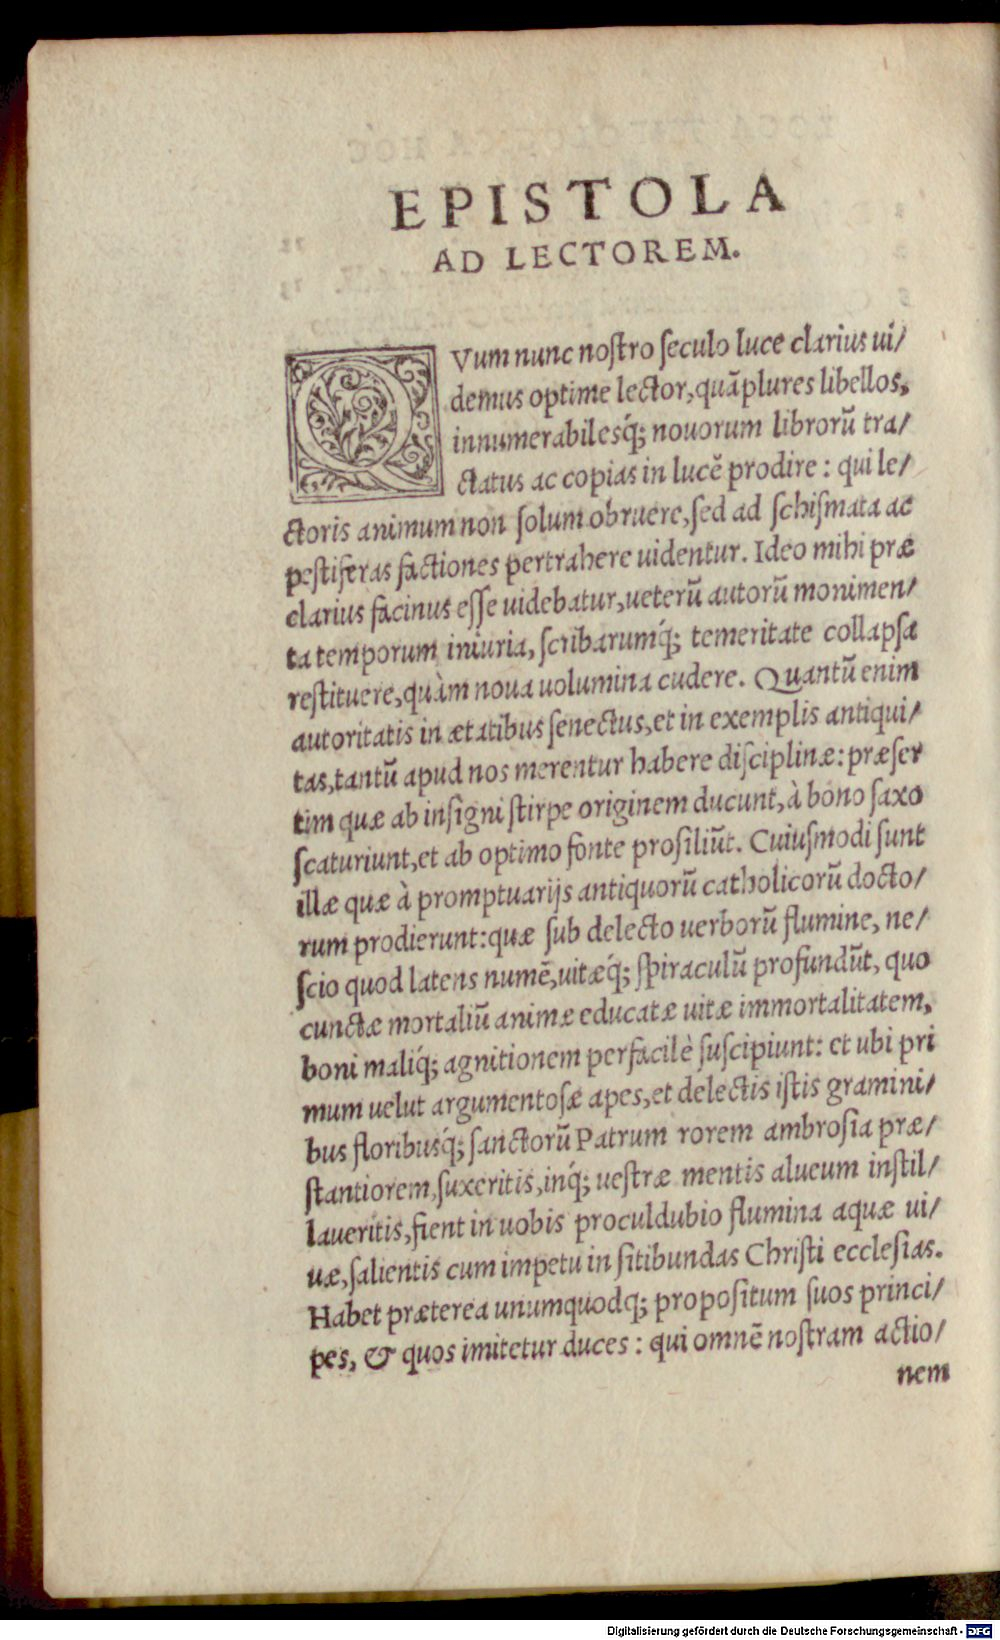 EPISTOLA
AD LECTOREM.
QVum nunc noſtro ſeculo luce clarius ui/
demus optime lector, quāplures libellos,
innumerabilesq́; nouorum librorū tra/
ctatus ac copias in lucē prodire : qui le/
ctoris animum non ſolum obruere, ſed ad ſchiſmata ac
peſtiferas factiones pertrahere uidentur. Ideo mihi præ
clarius facinus eſſe uidebatur, ueterū autorū monimen/
ta temporum iniuria, ſcribarumq́; temeritate collapſa
reſtituere, quàm noua uolumina cudere. Quantū enim
autoritatis in ætatibus ſenectus, et in exemplis antiqui/
tas, tantū apud nos merentur habere diſciplinæ: præſer
tim quæ ab inſigni ſtirpe originem ducunt, à bono ſaxo
ſcaturiunt, et ab optimo fonte proſiliūt. Cuiuſmodi ſunt
illæ quæ à promptuarijs antiquorū catholicorū docto/
rum prodierunt: quæ ſub delecto uerborū flumine, ne/
ſcio quod latens numē, uitæq́; ſpiraculū profundūt, quo
cunctæ mortaliū animæ educatæ uitæ immortalitatem,
boni maliq́; agnitionem perfacilè ſuſcipiunt: et ubi pri
mum uelut argumentoſæ apes, et delectis iſtis gramini/
bus floribusq́; ſanctorū Patrum rorem ambroſia præ/
ſtantiorem, ſuxeritis, inq́; ueſtræ mentis alueum inſtil/
laueritis, fient in uobis proculdubio flumina aquæ ui/
uæ, ſalientis cum impetu in ſitibundas Chriſti eccleſias.
Habet præterea unumquodq; propoſitum ſuos princi/
pes, & quos imitetur duces : qui omnē noſtram actio/
nem
Digitalisierung gefördert durch die Deutsche Forschungsgemeinschaft - DFG